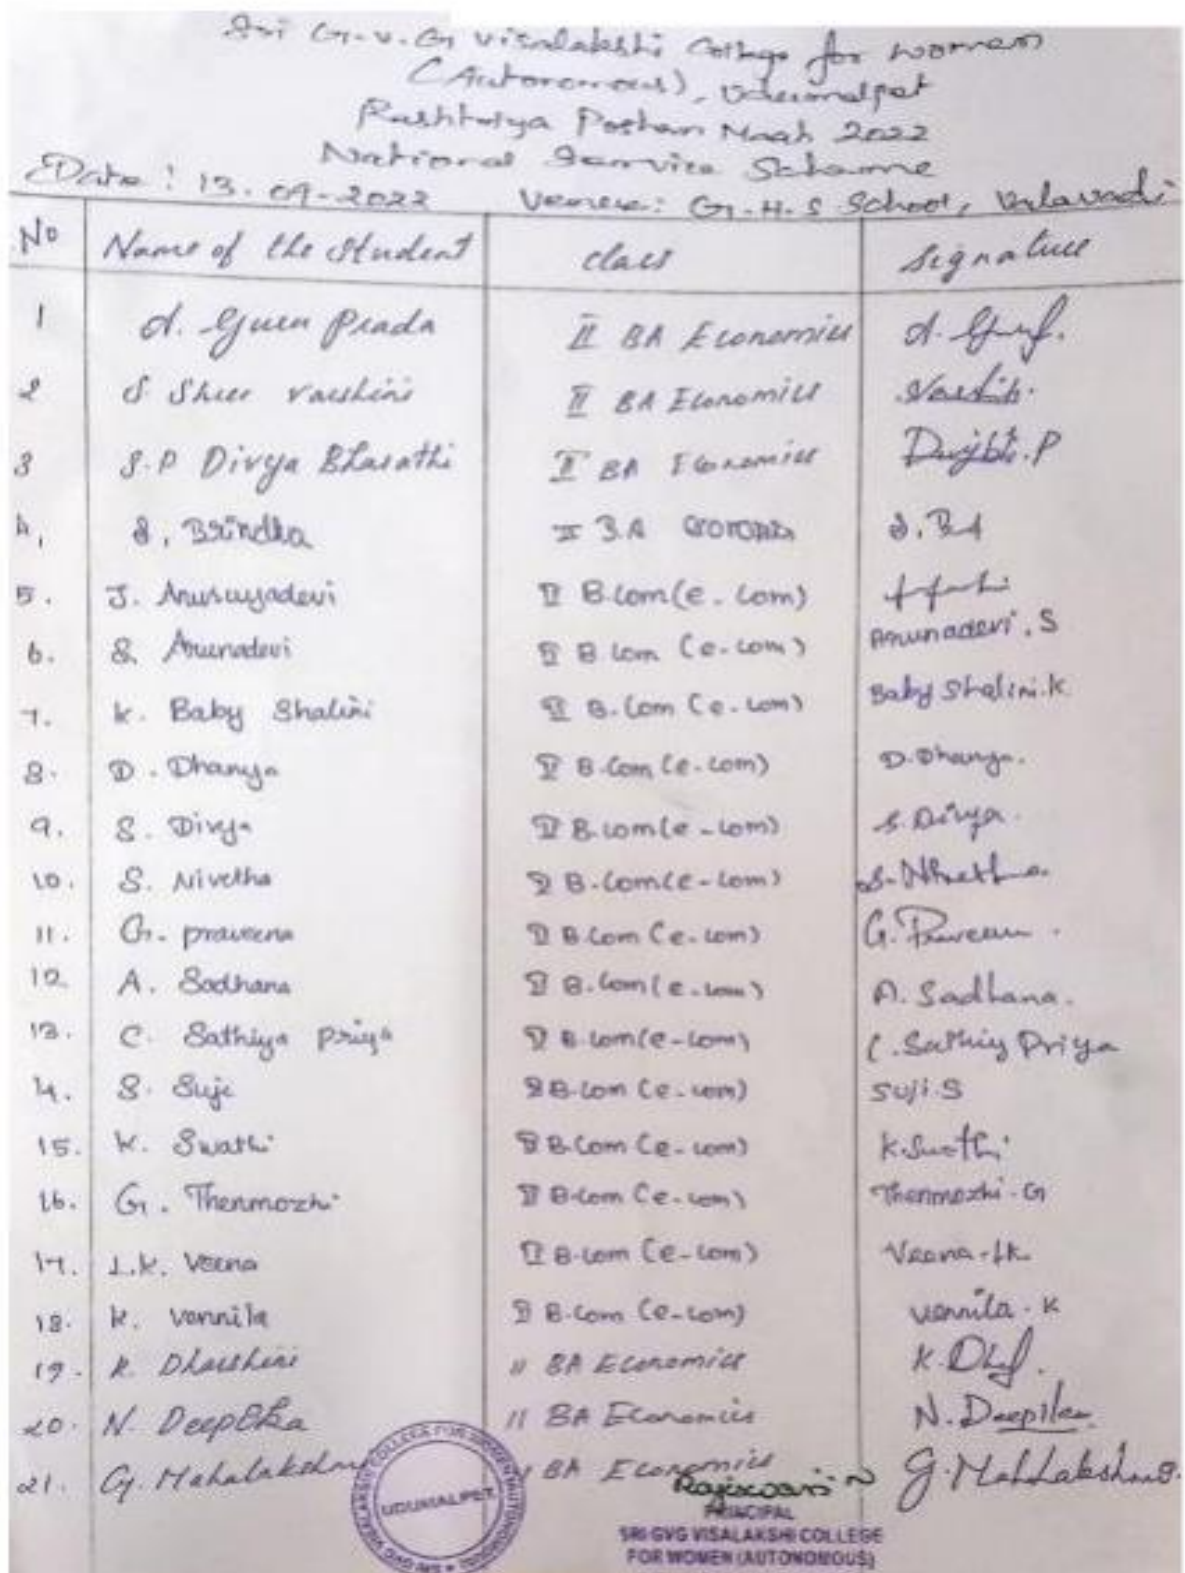 Sri G.V.G Visalakshi College for women
(Autonomous), Udumalpet
Rashtriya Poshan Maah 2022
National Service Scheme
Date: 13.09-2022 Venue: G.H.S School, Valavadi
No Name of the Student class signature
1 A. Guru Prada II BA Economics
2 S. Shree Varshini II BA Economics Varshi.
3 S.P Divya Bharathi II BA Economics
4. S. Brindha II B.A S.B
5. J. Anusuyadevi II B.Com(e-com)
6. S. Arunadevi II B.Com (e-com) Arunadevi.S
7. K. Baby Shalini II B.Com (e-com) Baby Shalini.K
8. D. Dhanya II B.Com (e-com) D.Dhanya.
9. S. Divya II B.com(e-com) S.Divya.
10. S. Nivetha II B.Com(e-com) S.Nivetha.
11. G. praveena II B.Com (e-com) G. Praveena.
12 A. Sadhana II B.Com(e-com) A. Sadhana.
13. C. Sathiya priya II B.Com(e-com) C. Sathiy Priya
14. S. Suji II B.Com (e-com) Suji.S
15. K. Swathi II B.Com (e-com) K.Swathi
16. G. Thenmozhi II B.Com (e-com) Thenmozhi.G
17. L.K. Veena II B.com (e-com) Veena.LK
18. K. Vennila II B.Com (e-com) Vennila.K
19. K. Dharshini II BA Economics
20. N. Deepika II BA Economics N. Deepika
21. G. Mahalakshmi II BA Economics G. Mahalakshmi
SRI GVG VISALAKSHI COLLEGE FOR WOMEN (AUTONOMOUS)
UDUMALPET
Rajeswari N
PRINCIPAL
SRI GVG VISALAKSHI COLLEGE
FOR WOMEN (AUTONOMOUS)